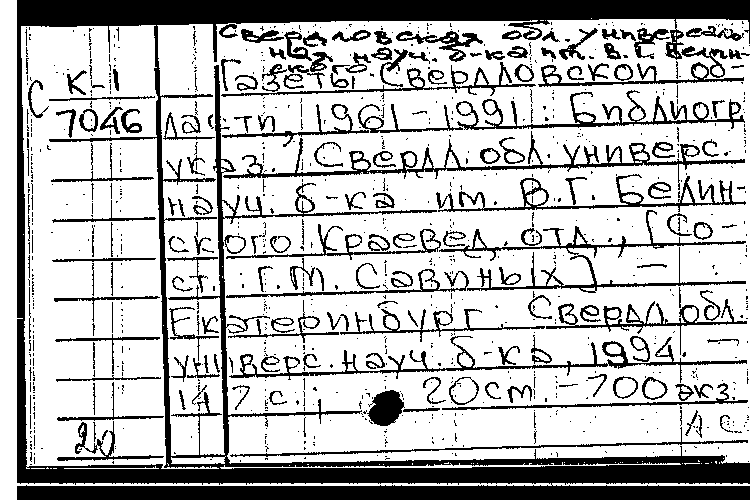 Свердловская обл. универсаль-
ная науч. б-ка им. В.Г. Белин-
ского.
Газеты Свердловской об-
С К-1
7046 ласти, 1961-1991 : Библиогр.
указ. / Свердл. обл. универс.
науч. б-ка им. В.Г. Белин-
ского. Краевед. отд.; [Со-
ст.: Г.М. Савиных]. —
Екатеринбург : Свердл. обл.
универс. науч. б-ка, 1994. —
147 с.; 20 см. - 700 экз.
АС
20